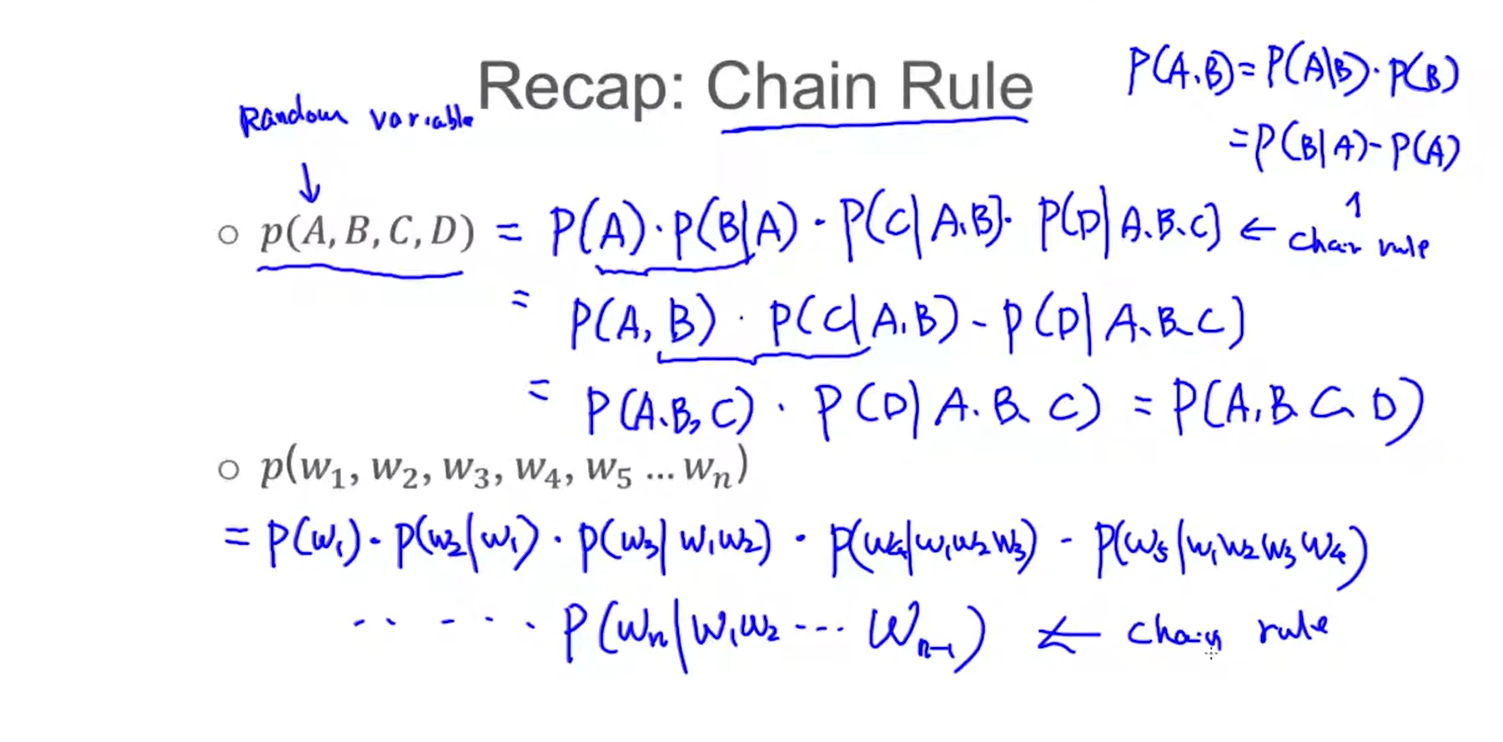 Recap: Chain Rule
P(A.B)= P(A|B)· P(B)
= P(B|A)- P(A)
Random variable
↓
○ p(A, B, C, D) = P(A)·P(B|A) · P(C|A.B)· P(D|A.B.C) ← chain rule
= P(A, B) · P(C|A.B) - P(D|A.B.C)
= P(A.B, C) · P(D|A.B.C) = P(A, B. C. D)
○ p(w₁, w₂, w₃, w₄, w₅ ... wₙ)
= P(w₁)·P(w₂|w₁)·P(w₃|w₁w₂) · P(w₄|w₁w₂w₃) - P(w₅|w₁w₂w₃w₄)
·· - ·· P(wₙ|w₁w₂ --- wₙ₋₁) ← chain rule